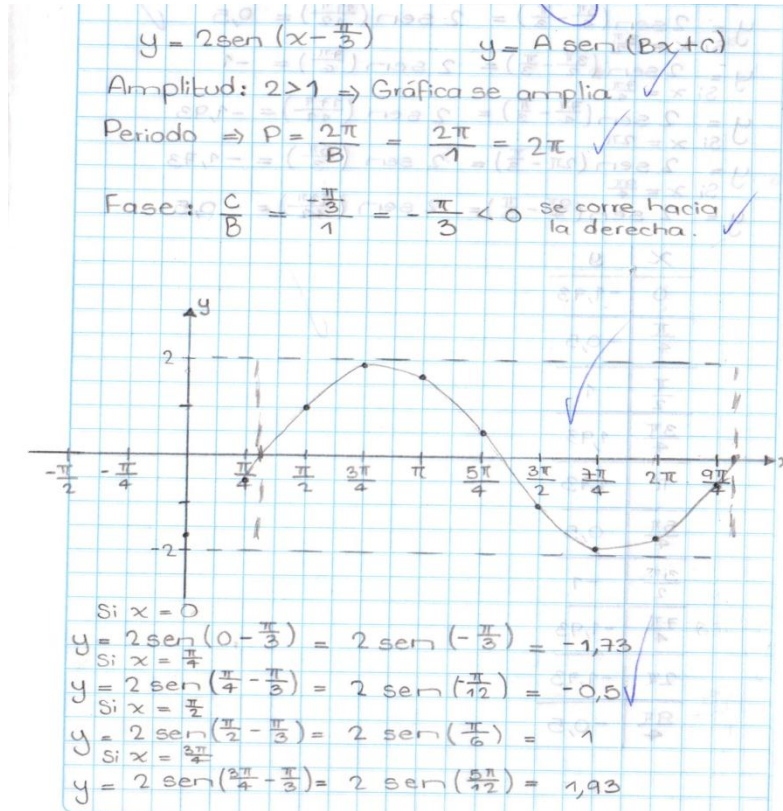 y = 2sen (x - π/3) y = A sen (Bx + C)
Amplitud: 2>1 ⇒ Gráfica se amplia
Periodo ⇒ P = 2π/B = 2π/1 = 2π
Fase: C/B = (-π/3)/1 = -π/3 < 0 se corre hacia la derecha.
y
2
-π/2 -π/4 π/4 π/2 3π/4 π 5π/4 3π/2 7π/4 2π 9π/4 x
-2
Si x = 0
y = 2sen (0 - π/3) = 2 sen (-π/3) = -1,73
Si x = π/4
y = 2 sen (π/4 - π/3) = 2 sen (-π/12) = -0,5
Si x = π/2
y = 2 sen (π/2 - π/3) = 2 sen (π/6) = 1
Si x = 3π/4
y = 2 sen (3π/4 - π/3) = 2 sen (5π/12) = 1,93